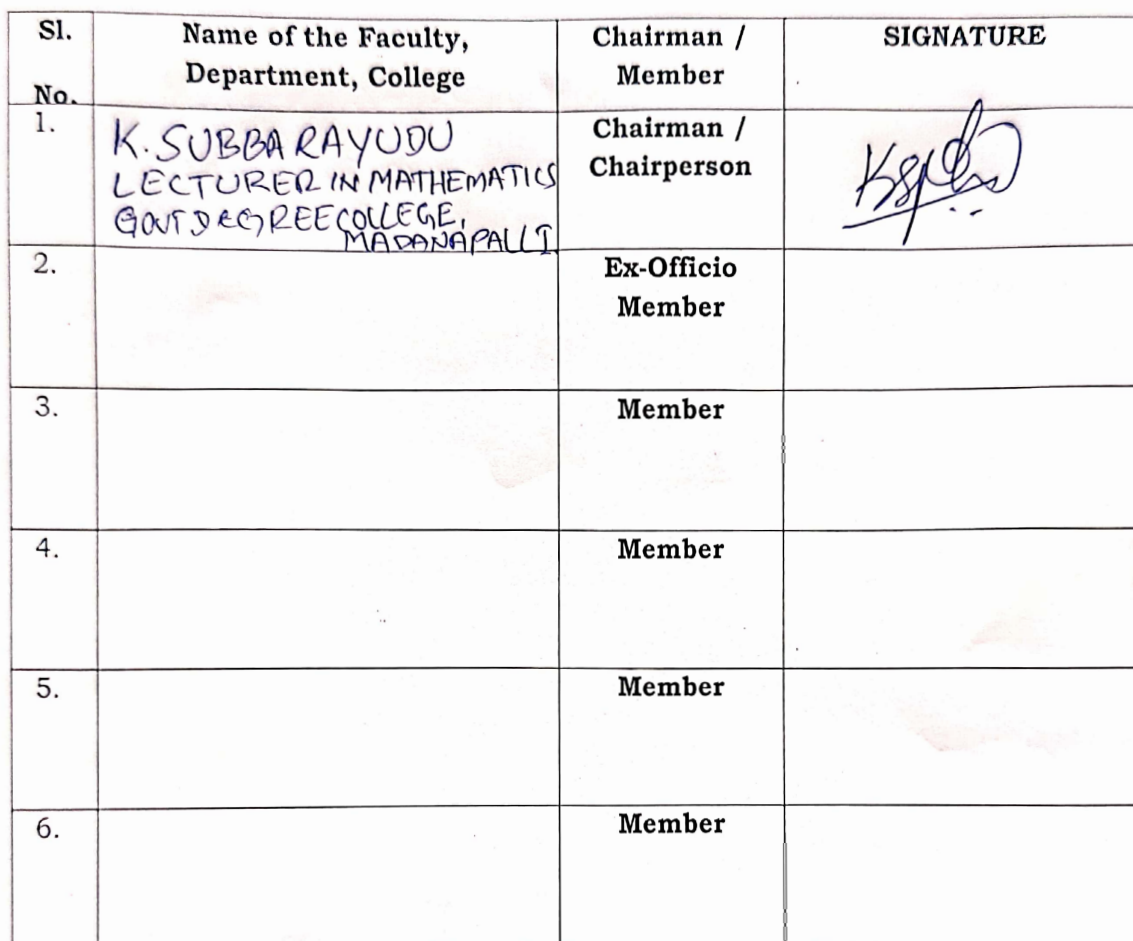 Sl. No.
Name of the Faculty,
Department, College
Chairman /
Member
SIGNATURE
1.
K. SUBBA RAYUDU
LECTURER IN MATHEMATICS
GOVT DEGREE COLLEGE,
MADANAPALLI
Chairman /
Chairperson
2.
Ex-Officio
Member
3.
Member
4.
Member
5.
Member
6.
Member